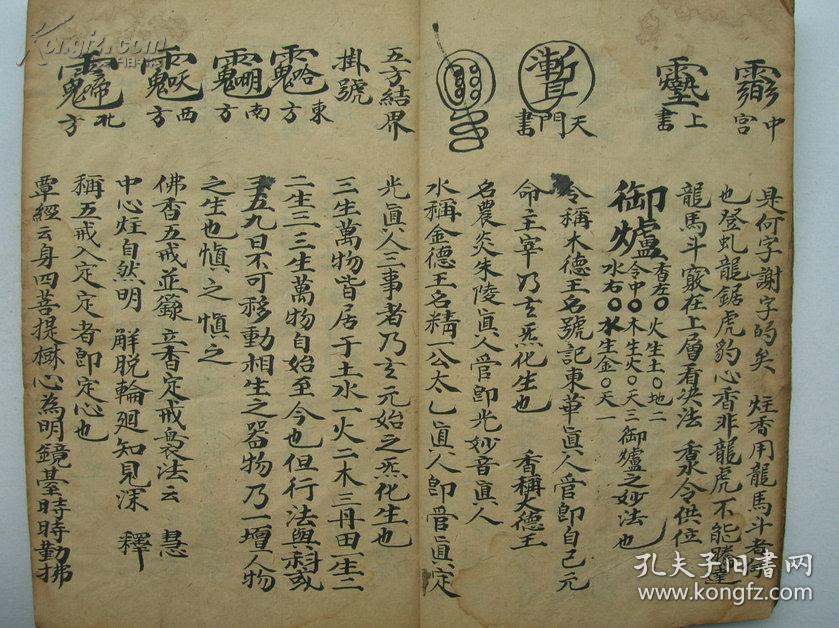 中宮
上書
天門書
五方結界
掛號
東方
南方
西方
北方
是何字謝字的矣 炷香用龍馬斗者
也登虬龍鋸虎豹心香非龍虎不能騰達
龍馬斗竅在上層看决法 香水令供位
御爐 香左〇火生土〇地二
令中〇木生火〇天三御爐之妙法也
水右〇水生金〇天一
令稱木德王名號記東華真人管即自己元
命主宰乃玄炁化生也 香稱火德王
名農炎朱陵真人管即光妙音真人
水稱金德王名精一公太乙真人即管真定
光真人三事者乃玄元始之炁化生也
三生萬物皆居于土水一火二木三丹田一生二
二生三三生萬物自始至今也但行法與科或
手五九日不可移動相生之器物乃一壇人物
之生也慎之慎之
佛香五戒並籙 炁香定戒襲法云 慧
中心炷自然明 解脫輪廻知見深 釋
稱五戒入定定者即定心也
覃經云身四菩提樹心為明鏡臺時時勤拂
Kongfz.com
孔夫子旧书网
www.kongfz.com